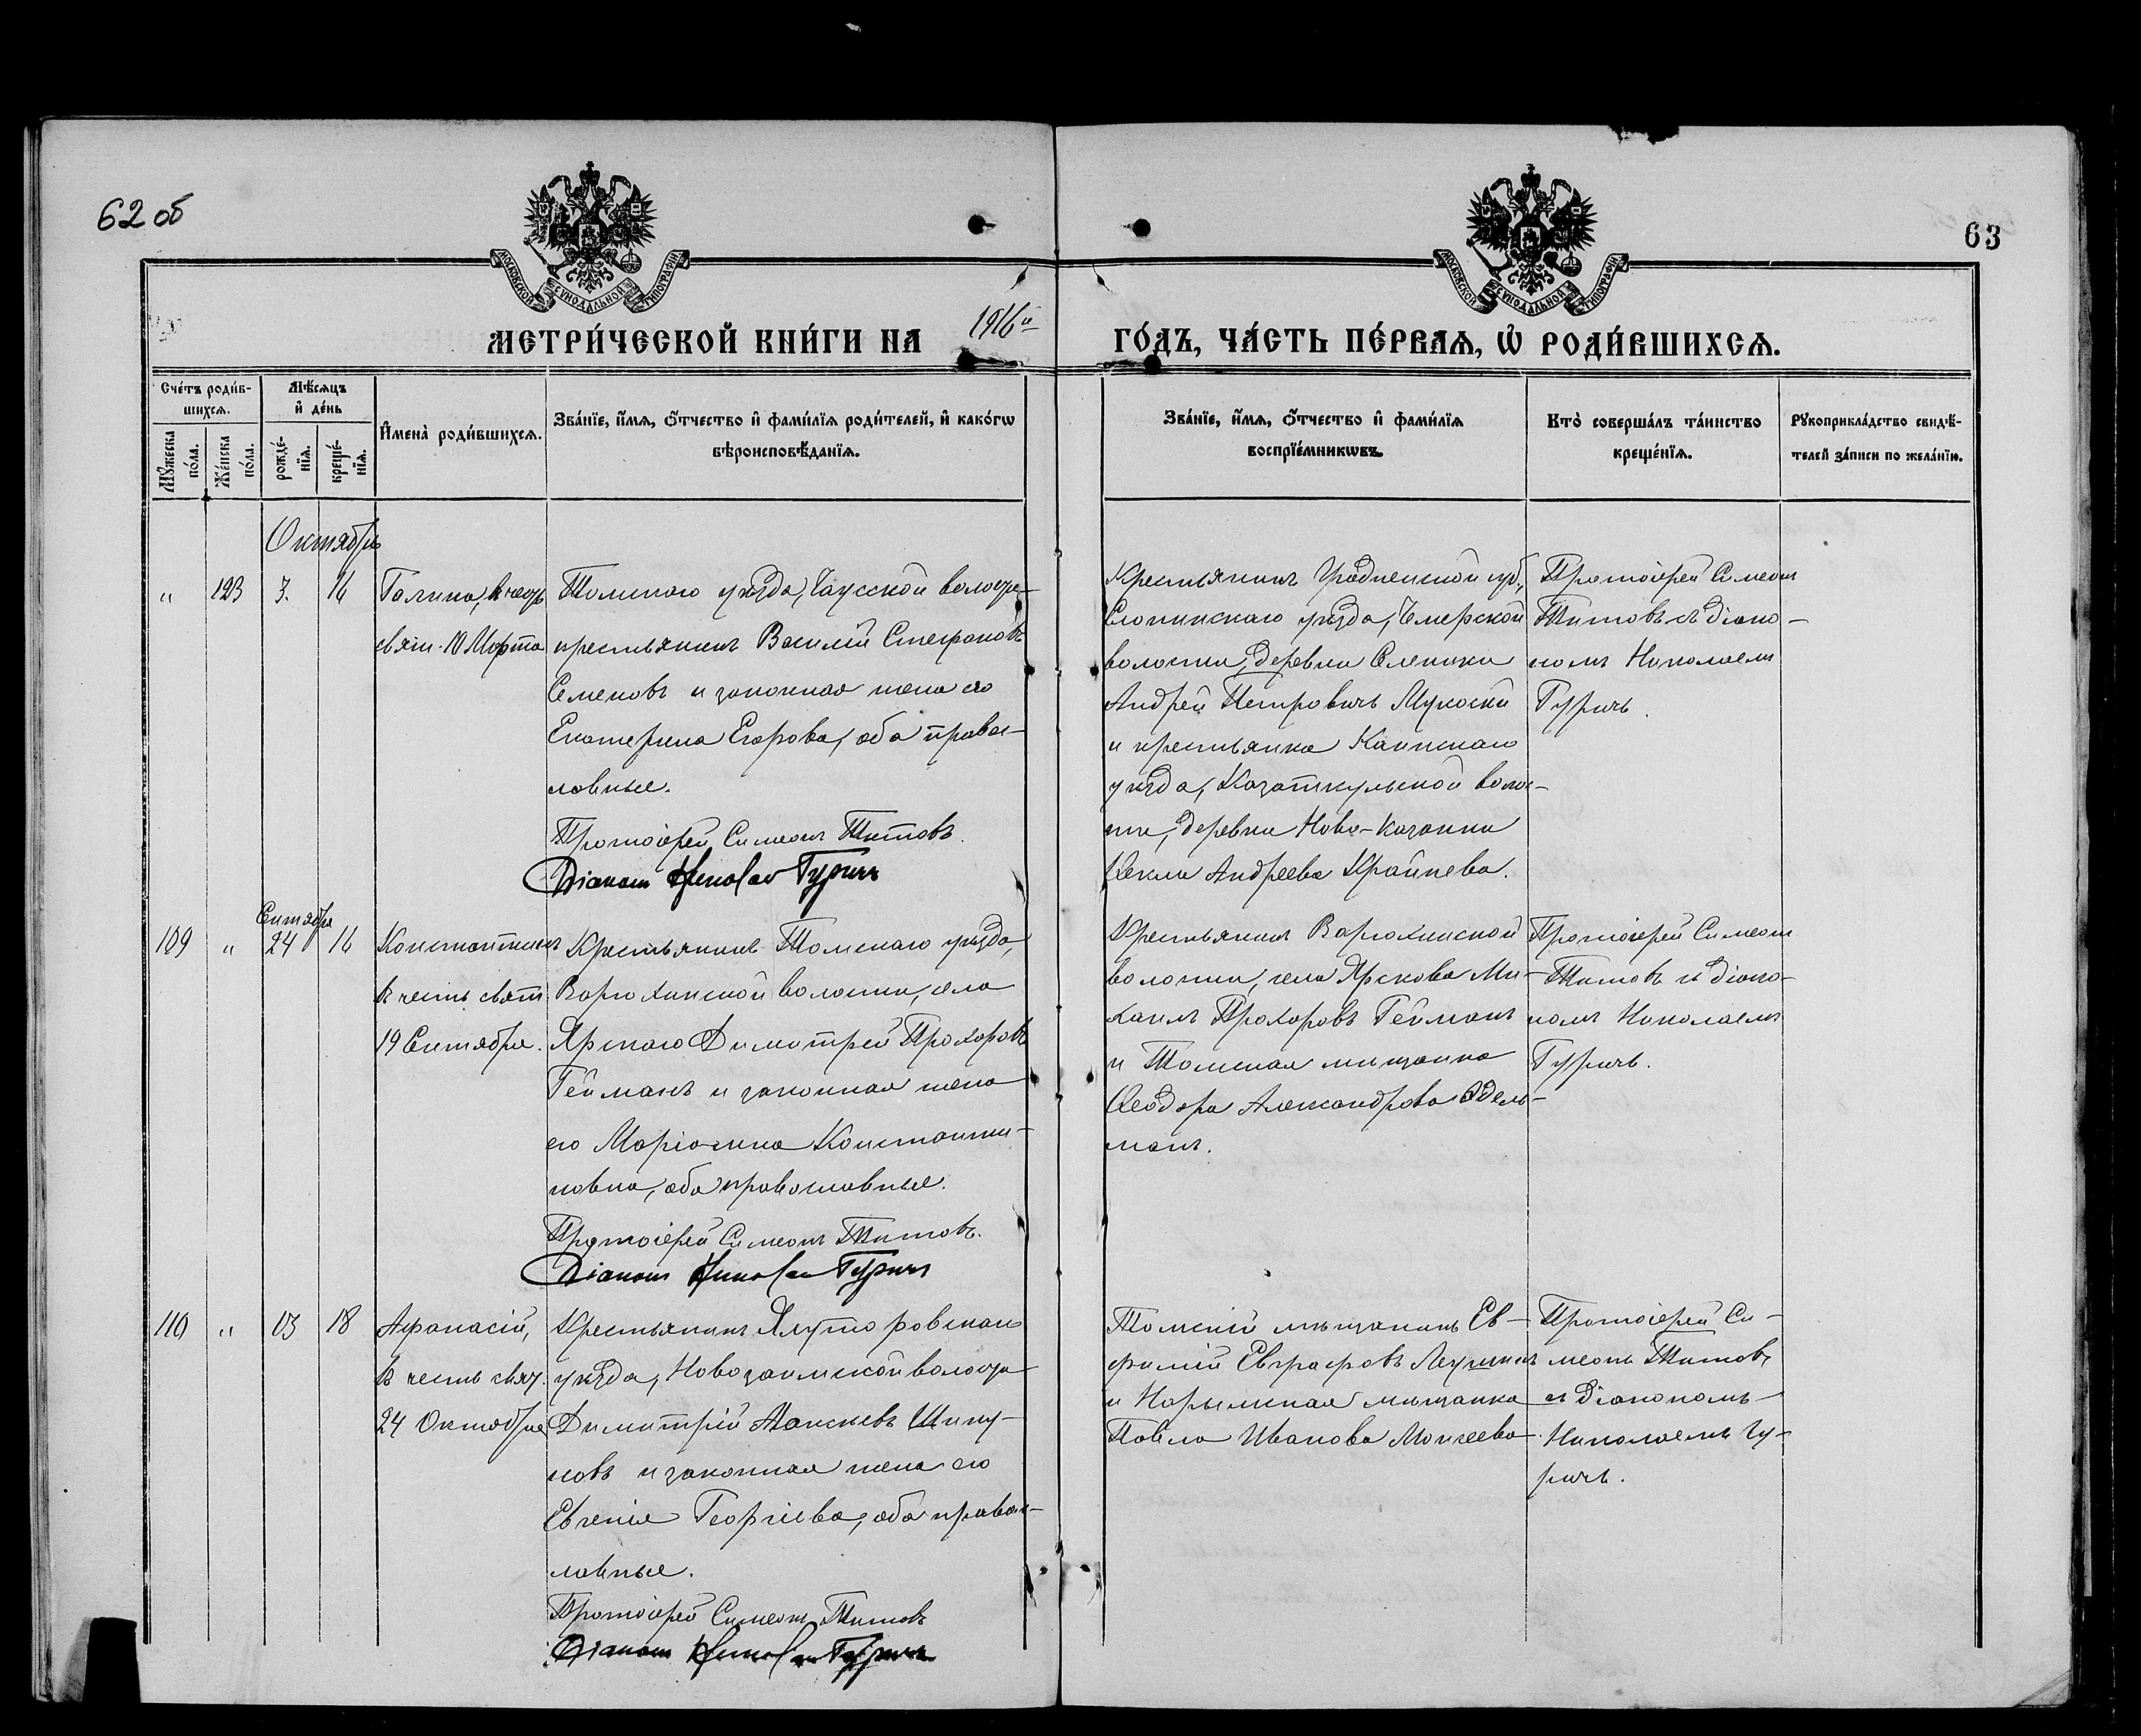 62 об
63
МОСКОВСКОЙ СѴНОДАЛЬНОЙ ТИПОГРАФІИ
МОСКОВСКОЙ СѴНОДАЛЬНОЙ ТИПОГРАФІИ
МЕТРИ́ЧЕСКОЙ КНИ́ГИ НА 1916й ГО́ДЪ, ЧА́СТЬ ПЕ́РВАѦ, Ѡ҆ РОДИ́ВШИХСѦ.
Сче́тъ роди́в-
шихсѧ.
Мꙋ́жеска по́ла.
Же́нска по́ла.
Мѣ́сѧцъ
и҆ де́нь
рожде́-
нїѧ.
креще́-
нїѧ.
И҆мена̀ роди́вшихсѧ.
Зва́нїе, и҆́мѧ, ѻ҆́тчество и҆ фами́лїѧ роди́телей, и҆ како́гѡ
вѣроисповѣ́данїѧ.
Зва́нїе, и҆́мѧ, ѻ҆́тчество и҆ фами́лїѧ
воспрїе́мникѡвъ.
Кто̀ соверша́лъ та́инство
креще́нїѧ.
Рꙋкоприкла́дство свидѣ́-
телей за́писи по жела́нїю.
Октябрь
" 123 3. 16 Галина, в честь
свят. 10 Марта
Томскаго уѣзда, Чаусской волости
крестьянинъ Василій Стефановъ
Семеновъ и законная жена его
Екатерина Егорова, оба правос-
лавные.
Протоіерей Симеонъ Титовъ.
Діаконъ Николай Гуричъ
Крестьянинъ Гродненской губ.,
Слонимскаго уѣзда, Чемерской
волости, деревни
Андрей Петровичъ
и крестьянка Каинскаго
уѣзда, Казаткульской волос-
ти, деревни Ново-Казанки
Ѳекла Андреева Крайнева.
Протоіерей Симеонъ
Титовъ съ діако-
номъ Николаемъ
Гуричъ.
Сентября
109 " 24 16 Константинъ
въ честь свят.
19 Сентября.
Крестьянинъ Томскаго уѣзда,
Варюхинской волости, села
Ярскаго Димитрей Прохоровъ
Гейманъ и законная жена
его Маріамна Константи-
новна, оба православные.
Протоіерей Симеонъ Титовъ.
Діаконъ Николай Гуричъ
Крестьянинъ Варюхинской
волости, села Ярскова Ми-
хаилъ Прохоровъ Гейманъ
и Томская мѣщанка
Ѳеодора Александрова Эдель-
манъ.
Протоіерей Симеонъ
Титовъ съ діако-
номъ Николаемъ
Гуричъ.
110 " 18 Афанасій,
въ честь свят.
24 Октября
Крестьянинъ Ялуторовскаго
уѣзда, Новозаимской волости
Димитрій
новъ и законная жена его
Евгенія Георгіева, оба правос-
лавные.
Протоіерей Симеонъ Титовъ
Діаконъ Николай Гуричъ
Томскій мѣщанинъ Ев-
фимій Евграфовъ
и Нарымская мѣщанка
Павла Иванова Моисеева
Протоіерей Си-
меонъ Титовъ
съ Діакономъ
Николаемъ Гу-
ричъ.